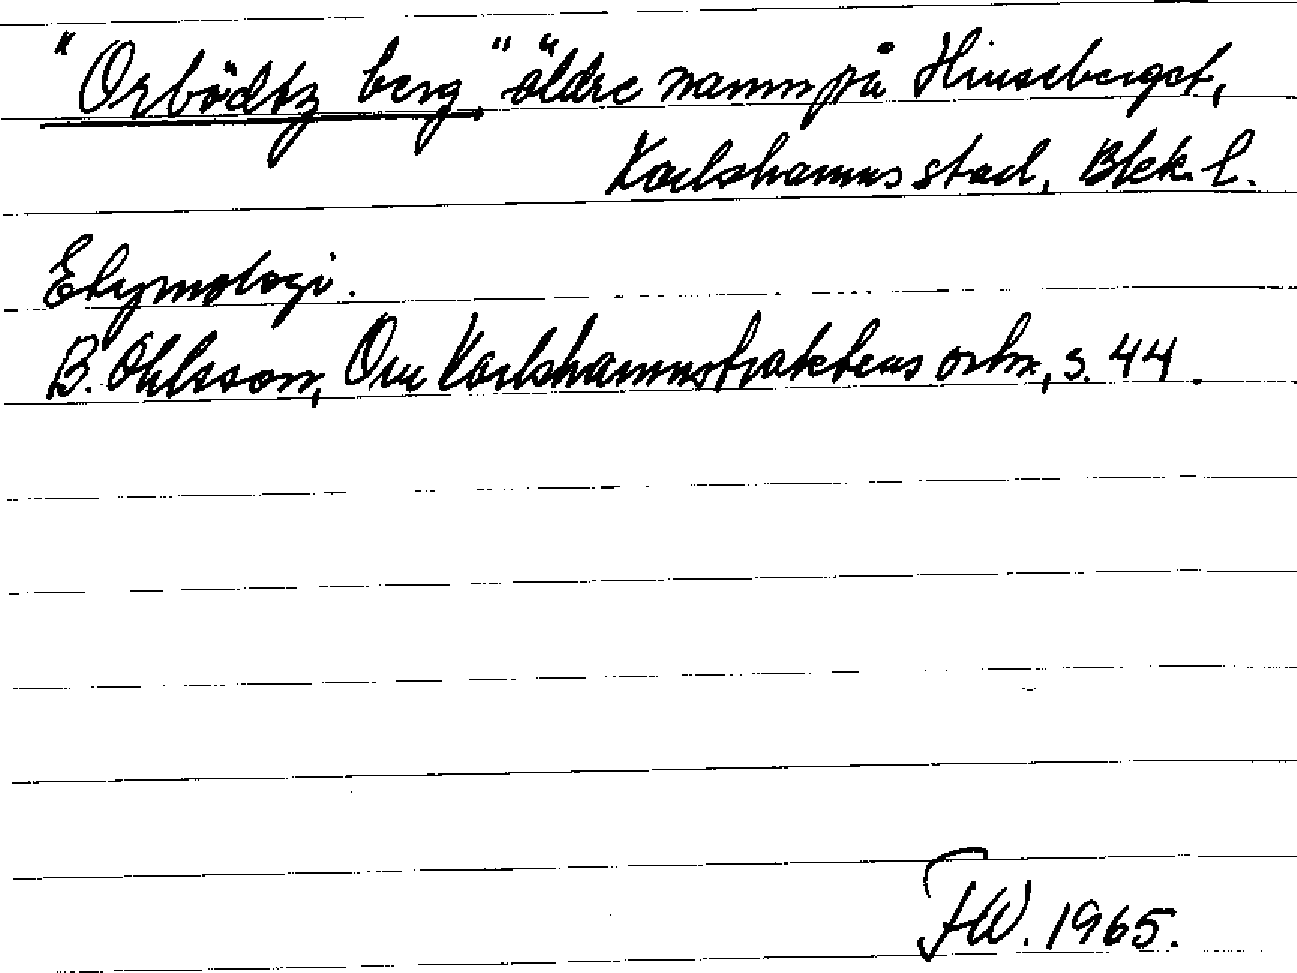 "Orbödtz berg", äldre namn på Hinseberget,
Karlshamns stad, Blek. l.
Etymologi.
B. Ohlsson, Om Karlshamnstraktens ortn., s. 44.
FW. 1965.